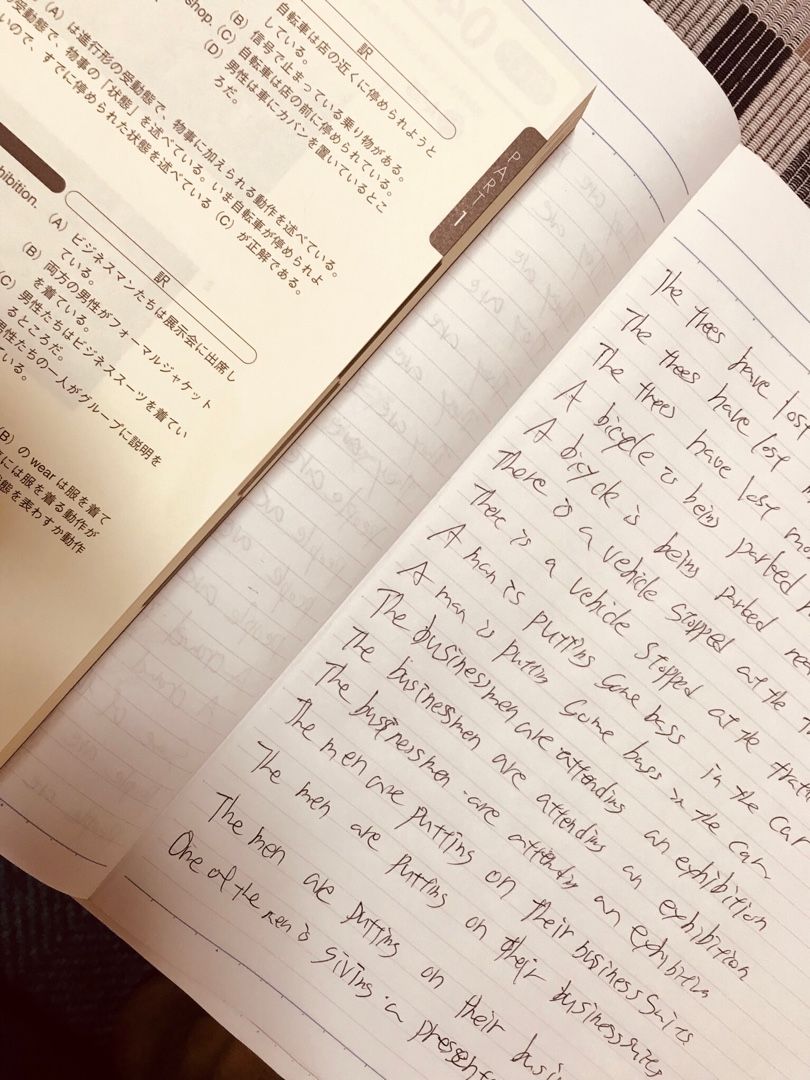 shop.
訳
自転車は店の近くに停められようと
している。
(B) 信号で止まっている乗り物がある。
(C) 自転車は店の前に停められている。
(D) 男性は車にカバンを置いているとこ
ろだ。
(A) は進行形の受動態で、物事に加えられる動作を述べている。
受動態で、物事の「状態」を述べている。いま自転車が停められよ
いので、すでに停められた状態を述べている (C) が正解である。
PART 1
hibition.
訳
(A) ビジネスマンたちは展示会に出席し
ている。
(B) 両方の男性がフォーマルジャケット
を着ている。
(C) 男性たちはビジネススーツを着てい
るところだ。
男性たちの一人がグループに説明を
いる。
(B) の wear は服を着て
には服を着る動作が
態を表わすか動作
The trees have lost
The trees have lost
The trees have lost
A bicycle is being parked
A bicycle is being parked
There is a vehicle stopped at the
There is a vehicle stopped at the
A man is putting some bags in the car
A man is putting some bags in the car
The businessmen are attending an exhibition
The businessmen are attending an exhibition
The businessmen are attending an exhibition
The men are putting on their business suits
The men are putting on their business suits
The men are putting on their
One of the men is giving a